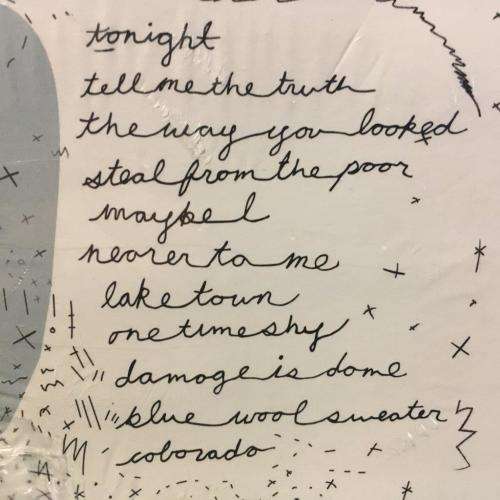 tonight
tell me the truth
the way you looked
steal from the poor
maybe I
nearer to me
lake town
one time shy
damage is dome
blue wool sweater
coborado